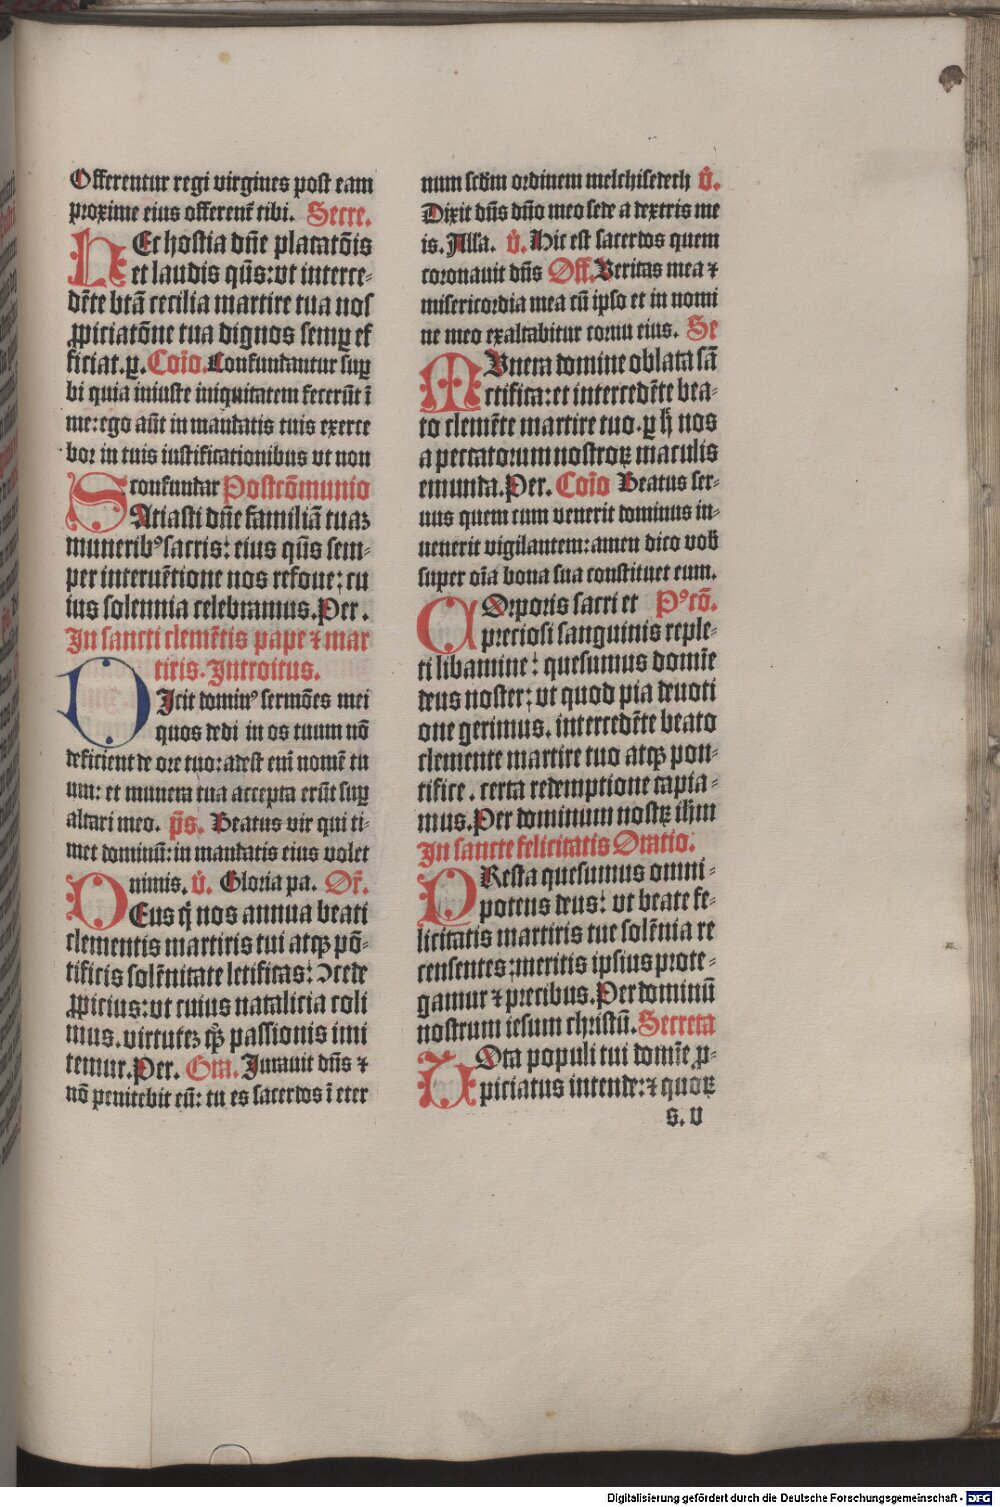 Offerentur regi virgines post eam
proxime eius offerent̄ tibi. Secre.
HEc hostia dn̄e placatōis
et laudis qūs: vt interce-
dēte btā cecilia martire tua nos
ꝓpiciatōne tua dignos semꝑ ef
ficiat. ꝑ. Coīo. Confundantur suꝑ
bi quia iniuste iniquitatem fecerūt ī
me: ego aūt in mandatis tuis exerce
bor in tuis iustificationibus vt non
confundar Postcōmunio
SAtiasti dn̄e familiā tuaꝫ
muneribꝰ sacris: eius qūs sem-
per interuētione nos refoue: cu
ius solennia celebramus. Per.
In sancti clemētis pape ⁊ mar
tiris. Introitus.
DIcit dominꝰ sermōes mei
quos dedi in os tuum nō
deficient de ore tuo: adest eni̅ nomē tu
um: et munera tua accepta erūt suꝑ
altari meo. p̄s. Beatus vir qui ti-
met dominū: in mandatis eius volet
nimis. v̊. Gloria pa. Or̄.
DEus q̄ nos annua beati
clementis martiris tui atqꝫ pō-
tificis solēnitate letificas: ꝯcede
ꝓpicius: vt cuius natalicia coli
mus. virtuteꝫ qꝫ passionis imi
temur. Per. Gra. Iurauit dn̄s ⁊
nō penitebit eū: tu es sacerdos ī eter
num scd̄m ordinem melchisedech v̊.
Dixit dn̄s dn̄o meo sede a dextris me
is. Alla. v̊. Hic est sacerdos quem
coronauit dn̄s Off. Veritas mea ⁊
misericordia mea cū ipso et in nomi
ne meo exaltabitur cornu eius. Se
MVnera domine oblata sā
ctifica: et intercedēte bea-
to clemēte martire tuo. ꝑ ħ nos
a peccatorum nostroꝝ maculis
emunda. Per. Coīo Beatus ser-
uus quem cum venerit dominus in-
uenerit vigilantem: amen dico vob̄
super oīa bona sua constituet eum.
COrporis sacri et Pꝰcō.
preciosi sanguinis reple-
ti libamine: quesumus domīe
deus noster: vt quod pia deuoti
one gerimus. intercedēte beato
clemente martire tuo atqꝫ pon-
tifice. certa redemptione capia-
mus. Per dominum nostꝝ ihm
In sancte felicitatis Oratio.
PResta quesumus omni-
potens deus: vt beate fe-
licitatis martiris tue solēnia re
censentes: meritis ipsius prote-
gamur ⁊ precibus. Per dominū
nostrum iesum christū. Secreta
VOta populi tui domīe ꝓ-
piciatus intende: ⁊ quoꝝ
s. v
Digitalisierung gefördert durch die Deutsche Forschungsgemeinschaft - DFG